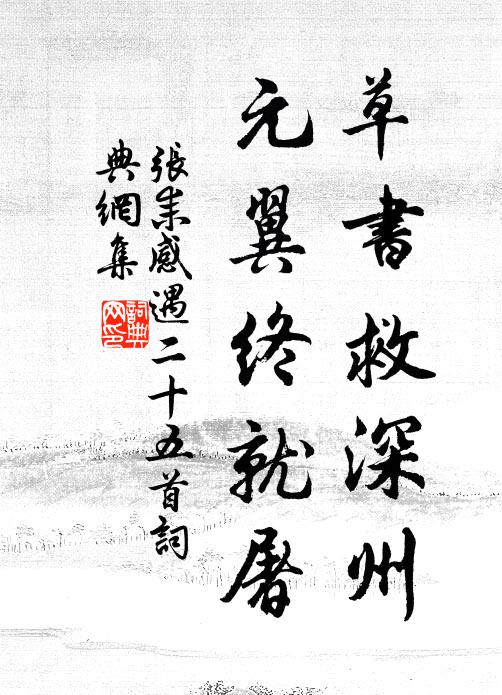 草書救深州
元翼終就屠
張耒感遇二十五首詞
典網集
詞典
网印